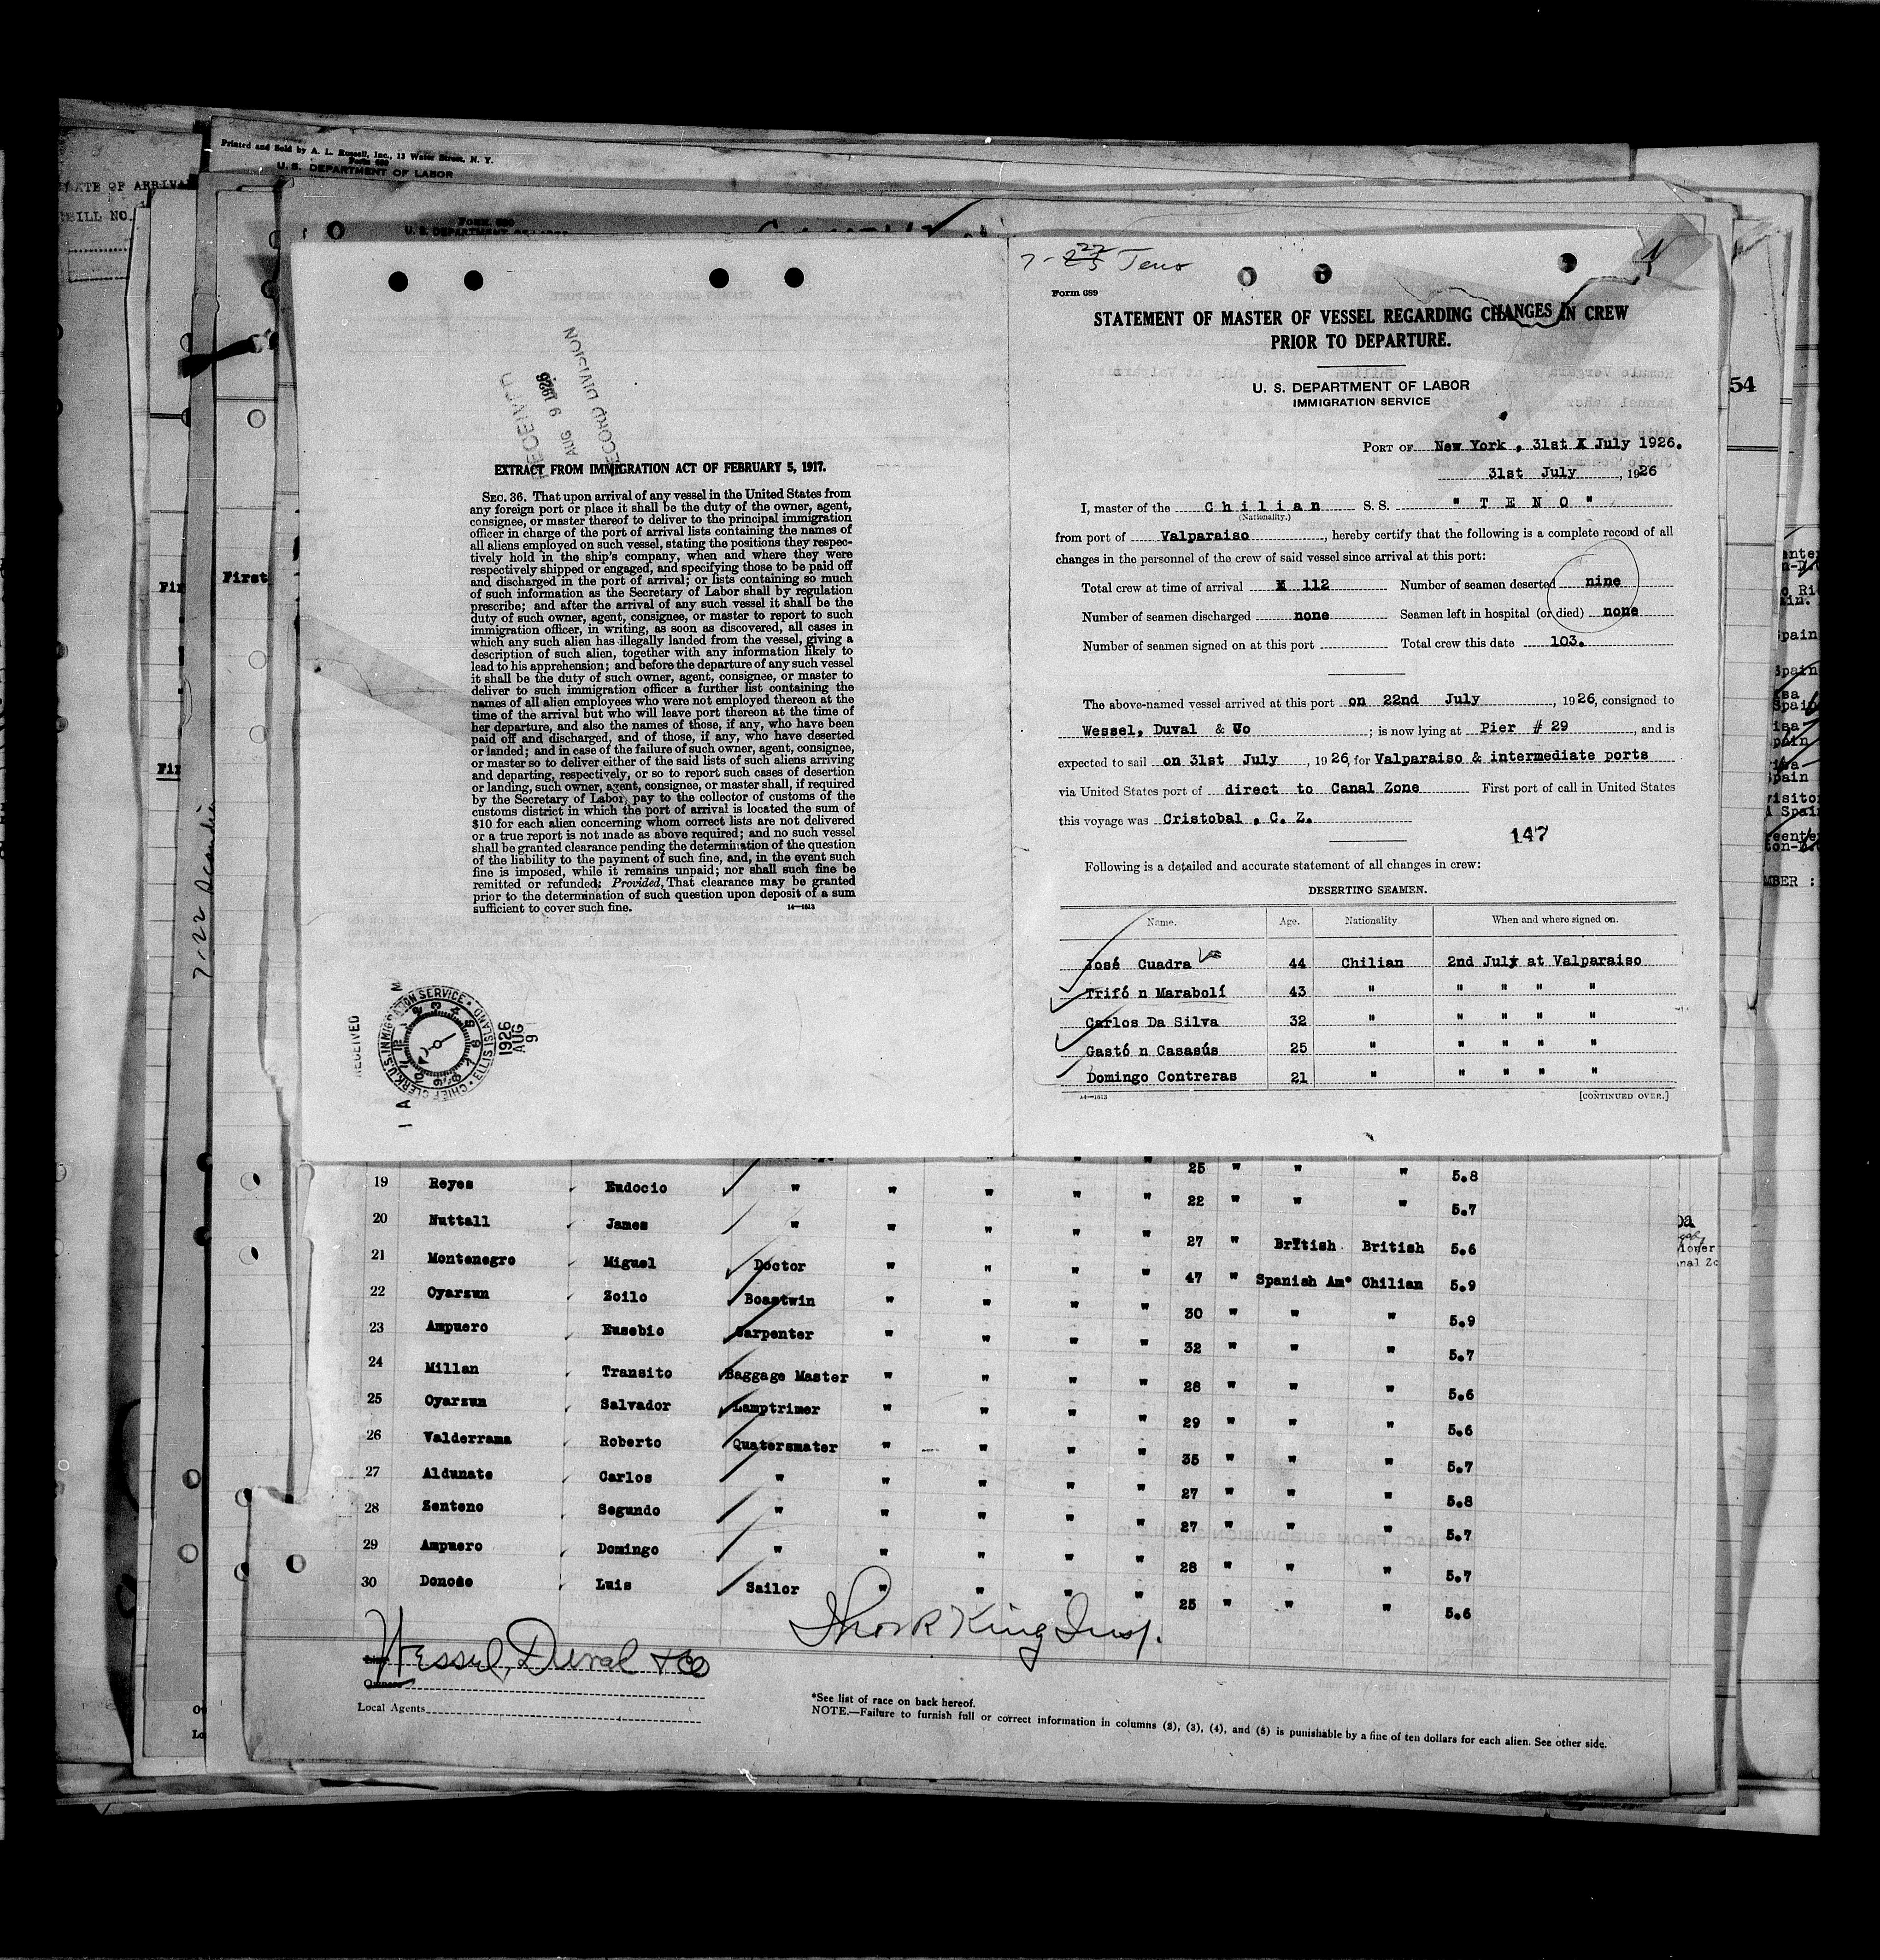 Printed and Sold by A. L. Russell, Inc., 13 Water Street, N. Y.
Form 689
U. S. DEPARTMENT OF LABOR
DATE OF ARRIVAL
BILL NO.
54
First
7-22 Teno
Form 689
STATEMENT OF MASTER OF VESSEL REGARDING CHANGES IN CREW
PRIOR TO DEPARTURE.
U. S. DEPARTMENT OF LABOR
IMMIGRATION SERVICE
PORT OF New York , 31st July 1926.
31st July , 1926
I, master of the Chilian S. S. " TENO "
(Nationality.)
from port of Valparaiso , hereby certify that the following is a complete record of all
changes in the personnel of the crew of said vessel since arrival at this port:
Total crew at time of arrival 112 Number of seamen deserted nine
Number of seamen discharged none Seamen left in hospital (or died) none
Number of seamen signed on at this port Total crew this date 103.
The above-named vessel arrived at this port on 22nd July , 1926, consigned to
Wessel, Duval & Co ; is now lying at Pier # 29 , and is
expected to sail on 31st July , 1926, for Valparaiso & intermediate ports
via United States port of direct to Canal Zone First port of call in United States
this voyage was Cristobal , C. Z.
147
Following is a detailed and accurate statement of all changes in crew:
DESERTING SEAMEN.
Name. Age. Nationality When and where signed on.
José Cuadra 44 Chilian 2nd July at Valparaiso
Trifó n Marabolí 43 " " " " "
Carlos Da Silva 32 " " " " "
Gastó n Casasús 25 " " " " "
Domingo Contreras 21 " " " " "
14—1513 [CONTINUED OVER.]
RECEIVED
AUG 9 1926
RECORD DIVISION
EXTRACT FROM IMMIGRATION ACT OF FEBRUARY 5, 1917.
SEC. 36. That upon arrival of any vessel in the United States from
any foreign port or place it shall be the duty of the owner, agent,
consignee, or master thereof to deliver to the principal immigration
officer in charge of the port of arrival lists containing the names of
all aliens employed on such vessel, stating the positions they respec-
tively hold in the ship's company, when and where they were
respectively shipped or engaged, and specifying those to be paid off
and discharged in the port of arrival; or lists containing so much
of such information as the Secretary of Labor shall by regulation
prescribe; and after the arrival of any such vessel it shall be the
duty of such owner, agent, consignee, or master to report to such
immigration officer, in writing, as soon as discovered, all cases in
which any such alien has illegally landed from the vessel, giving a
description of such alien, together with any information likely to
lead to his apprehension; and before the departure of any such vessel
it shall be the duty of such owner, agent, consignee, or master to
deliver to such immigration officer a further list containing the
names of all alien employees who were not employed thereon at the
time of the arrival but who will leave port thereon at the time of
her departure, and also the names of those, if any, who have been
paid off and discharged, and of those, if any, who have deserted
or landed; and in case of the failure of such owner, agent, consignee,
or master so to deliver either of the said lists of such aliens arriving
and departing, respectively, or so to report such cases of desertion
or landing, such owner, agent, consignee, or master shall, if required
by the Secretary of Labor, pay to the collector of customs of the
customs district in which the port of arrival is located the sum of
$10 for each alien concerning whom correct lists are not delivered
or a true report is not made as above required; and no such vessel
shall be granted clearance pending the determination of the question
of the liability to the payment of such fine, and, in the event such
fine is imposed, while it remains unpaid; nor shall such fine be
remitted or refunded: Provided, That clearance may be granted
prior to the determination of such question upon deposit of a sum
sufficient to cover such fine. 14—1513
RECEIVED
CHIEF CLERK, U.S. IMMIGRATION SERVICE ELLIS ISLAND
1926 AUG 9
25 " " " 5.8
19 Reyes Eudocio " " " " " 22 " " " 5.7
20 Nuttall James " " " " " 27 " British British 5.6
21 Montenegro Miguel Doctor " " " " 47 " Spanish Am. Chilian 5.9
22 Oyarzun Zoilo Boastwin " " " " 30 " " " 5.9
23 Ampuero Eusebio Carpenter " " " " 32 " " " 5.7
24 Millan Transito Baggage Master " " " " 28 " " " 5.6
25 Oyarzun Salvador Lamptrimer " " " " 29 " " " 5.6
26 Valderrama Roberto Quatersmater " " " " 35 " " " 5.7
27 Aldunate Carlos " " " " " 27 " " " 5.8
28 Zenteno Segundo " " " " " 27 " " " 5.7
29 Ampuero Domingo " " " " " 28 " " " 5.7
30 Donoso Luis Sailor " " " " 25 " " " 5.6
Wessel, Duval & Co
Owners
Local Agents
*See list of race on back hereof.
NOTE.—Failure to furnish full or correct information in columns (2), (3), (4), and (5) is punishable by a fine of ten dollars for each alien. See other side.